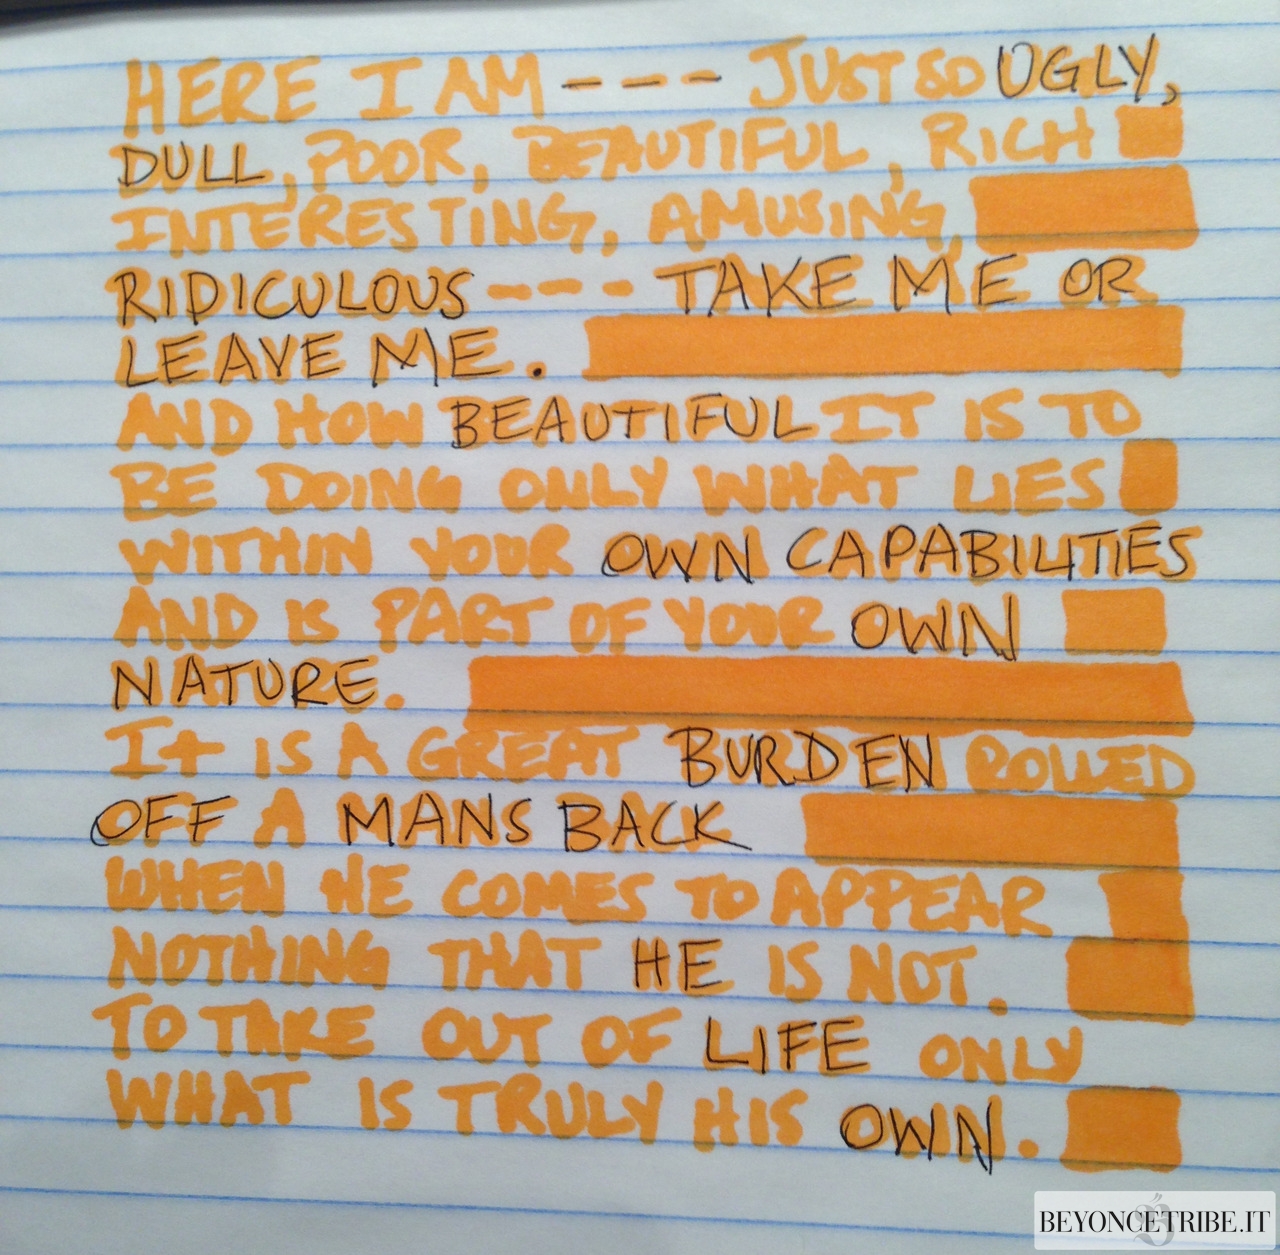 HERE I AM - - - JUST SO UGLY,
DULL, POOR, BEAUTIFUL, RICH
INTERESTING, AMUSING,
RIDICULOUS - - - TAKE ME OR
LEAVE ME.
AND HOW BEAUTIFUL IT IS TO
BE DOING ONLY WHAT LIES
WITHIN YOUR OWN CAPABILITIES
AND IS PART OF YOUR OWN
NATURE.
It IS A GREAT BURDEN ROLLED
OFF A MANS BACK
WHEN HE COMES TO APPEAR
NOTHING THAT HE IS NOT.
TO TAKE OUT OF LIFE ONLY
WHAT IS TRULY HIS OWN.
BEYONCETRIBE.IT